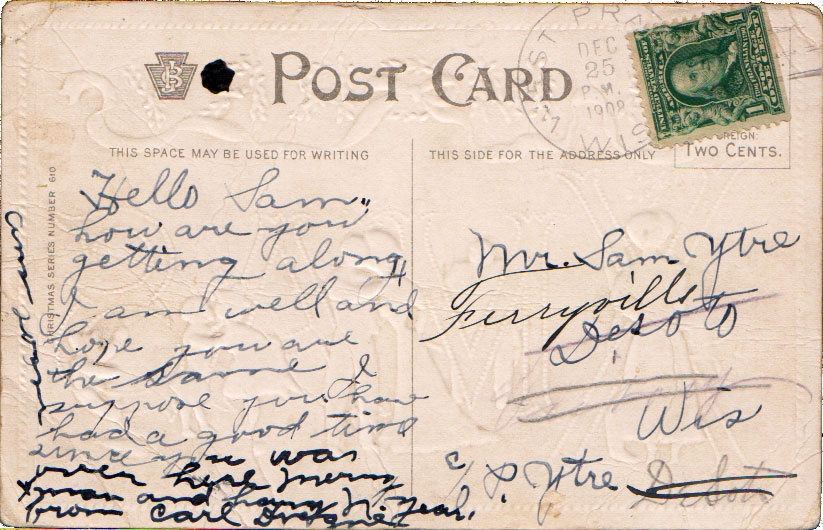 POST CARD
THIS SPACE MAY BE USED FOR WRITING
THIS SIDE FOR THE ADDRESS ONLY
DEC
25
P.M.
1908
WIS
FOREIGN:
TWO CENTS.
CHRISTMAS SERIES NUMBER 610
Hello Sam"
how are you
getting along"
I am well and
hope you are
the same I
suppose you have
had a good time
since you was
over here Merry
Xmas and happy N Year.
from Carl
Mr. Sam Ytre
Ferryville
Desoto
Wis
c/ P Ytre Desoto